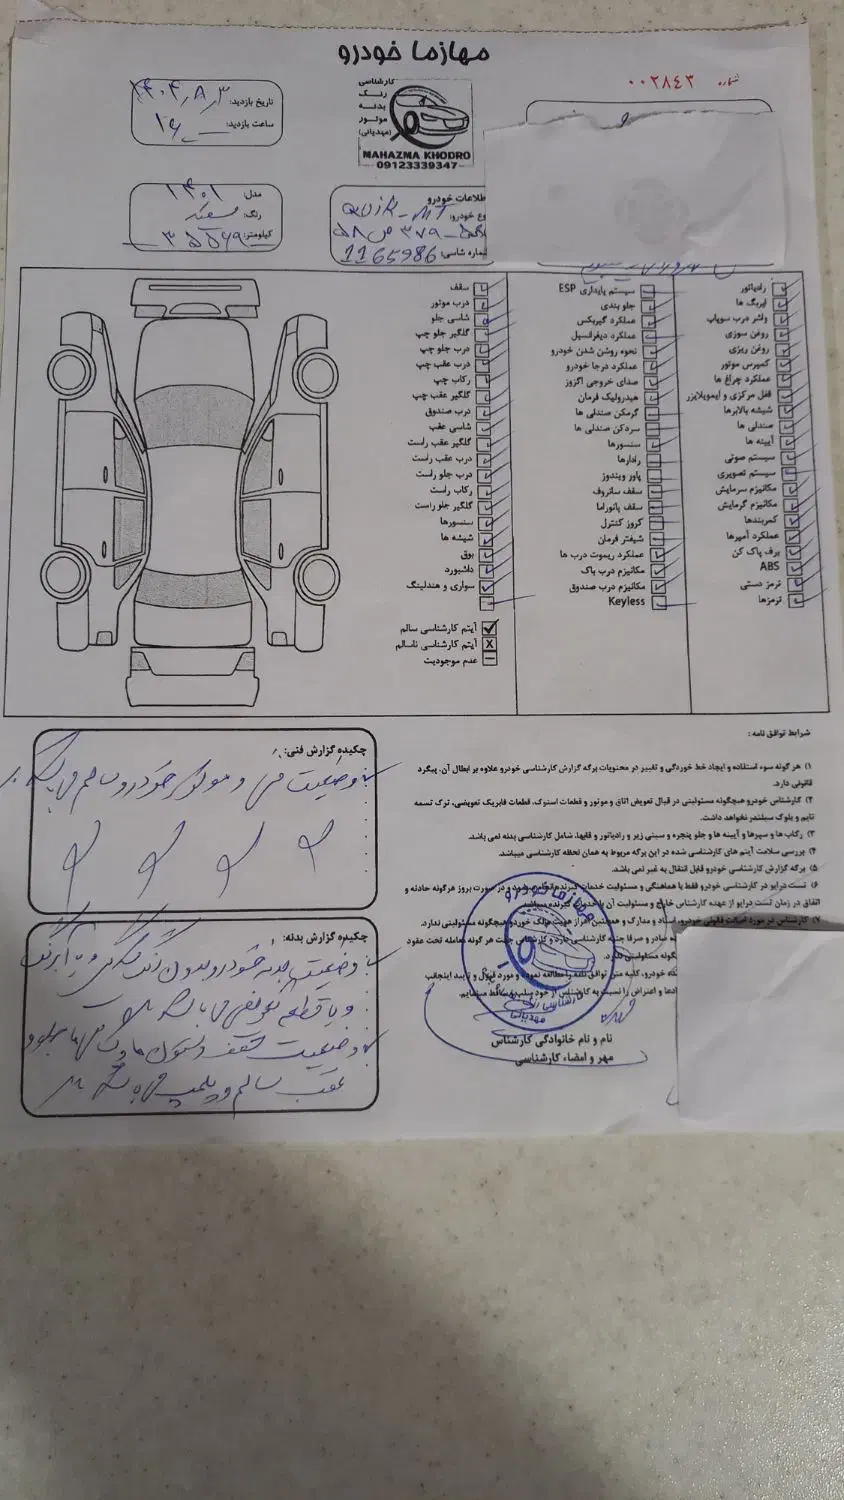 مهازما خودرو
شماره ۰۰۲۸۴۳
کارشناسی
رنگ
بدنه
موتور
(مهدیانی)
MAHAZMA KHODRO
09123339347
تاریخ بازدید: ۱۴۰۴٫۸٫۳
ساعت بازدید: ۱۶
مدل: ۱۴۰۱
رنگ: سفید
کیلومتر: ۳۵۵۶۹
طلاعات خودرو
وع خودرو: QUIK-MT
شماره شاسی: 1165986
رادیاتور
ایربگ ها
واشر درب سوپاپ
روغن سوزی
روغن ریزی
کمپرس موتور
عملکرد چراغ ها
قفل مرکزی و ایموبلایزر
شیشه بالابرها
صندلی ها
آیینه ها
سیستم صوتی
سیستم تصویری
مکانیزم سرمایش
مکانیزم گرمایش
کمربندها
عملکرد آمپرها
برف پاک کن
ABS
ترمز دستی
ترمزها
سیستم پایداری ESP
جلو بندی
عملکرد گیربکس
عملکرد دیفرانسیل
نحوه روشن شدن خودرو
عملکرد درجا خودرو
صدای خروجی اگزوز
هیدرولیک فرمان
گرمکن صندلی ها
سردکن صندلی ها
سنسورها
رادارها
پاور ویندوز
سقف سانروف
سقف پانوراما
کروز کنترل
شیفتر فرمان
عملکرد ریموت درب ها
مکانیزم درب باک
مکانیزم درب صندوق
Keyless
سقف
درب موتور
شاسی جلو
گلگیر جلو چپ
درب جلو چپ
درب عقب چپ
رکاب چپ
گلگیر عقب چپ
درب صندوق
شاسی عقب
گلگیر عقب راست
درب عقب راست
درب جلو راست
رکاب راست
گلگیر جلو راست
سنسورها
شیشه ها
بوق
داشبورد
سواری و هندلینگ
آیتم کارشناسی سالم
آیتم کارشناسی ناسالم
عدم موجودیت
چکیده گزارش فنی:
وضعیت فنی و موتور خودرو سالم می باشد
چکیده گزارش بدنه:
وضعیت بدنه خودرو بدون رنگ شدگی و یا آبرنگ
و یا قطعه تعویض می باشد
وضعیت سقف و ستون ها و شاسی ها جلو و
عقب سالم و پلمپ می باشد
شرایط توافق نامه :
۱) هر گونه سوء استفاده و ایجاد خط خوردگی و تغییر در محتویات برگه گزارش کارشناسی خودرو علاوه بر ابطال آن، پیگرد
قانونی دارد.
۲) کارشناس خودرو هیچگونه مسئولیتی در قبال تعویض اتاق و موتور و قطعات استوک، قطعات فابریک تعویضی، ترک تسمه
تایم و بلوک سیلندر نخواهد داشت.
۳) رکاب ها و سپرها و آیینه ها و جلو پنجره و سینی زیر و رادیاتور و قابها، شامل کارشناسی بدنه نمی باشد.
۴) بررسی سلامت آیتم های کارشناسی شده در این برگه مربوط به همان لحظه کارشناسی میباشد.
۵) برگه گزارش کارشناسی خودرو قابل انتقال به غیر نمی باشد.
۶) تست درایو در کارشناسی خودرو فقط با هماهنگی و مسئولیت خدمات گیرنده انجام میشود و در صورت بروز هرگونه حادثه و
اتفاق در زمان تست درایو از عهده کارشناس خارج و مسئولیت آن با خدمات گیرنده میباشد.
۷) کارشناس در مورد اصالت قانونی خودرو، اسناد و مدارک و همچنین احراز هویت مالک خودرو هیچگونه مسئولیتی ندارد.
صادر و صرفا جنبه کارشناسی دارد و کارشناس جهت هر گونه معامله تحت عقود
گونه مسئولیتی ندارد.
خودرو، کلیه متن توافق نامه را مطالعه نموده و مورد قبول و تایید اینجانب
ادعا و اعتراض را نسبت به کارشناس از خود سلب و ساقط مینمایم.
نام و نام خانوادگی کارشناس
مهر و امضاء کارشناسی
مهازما خودرو